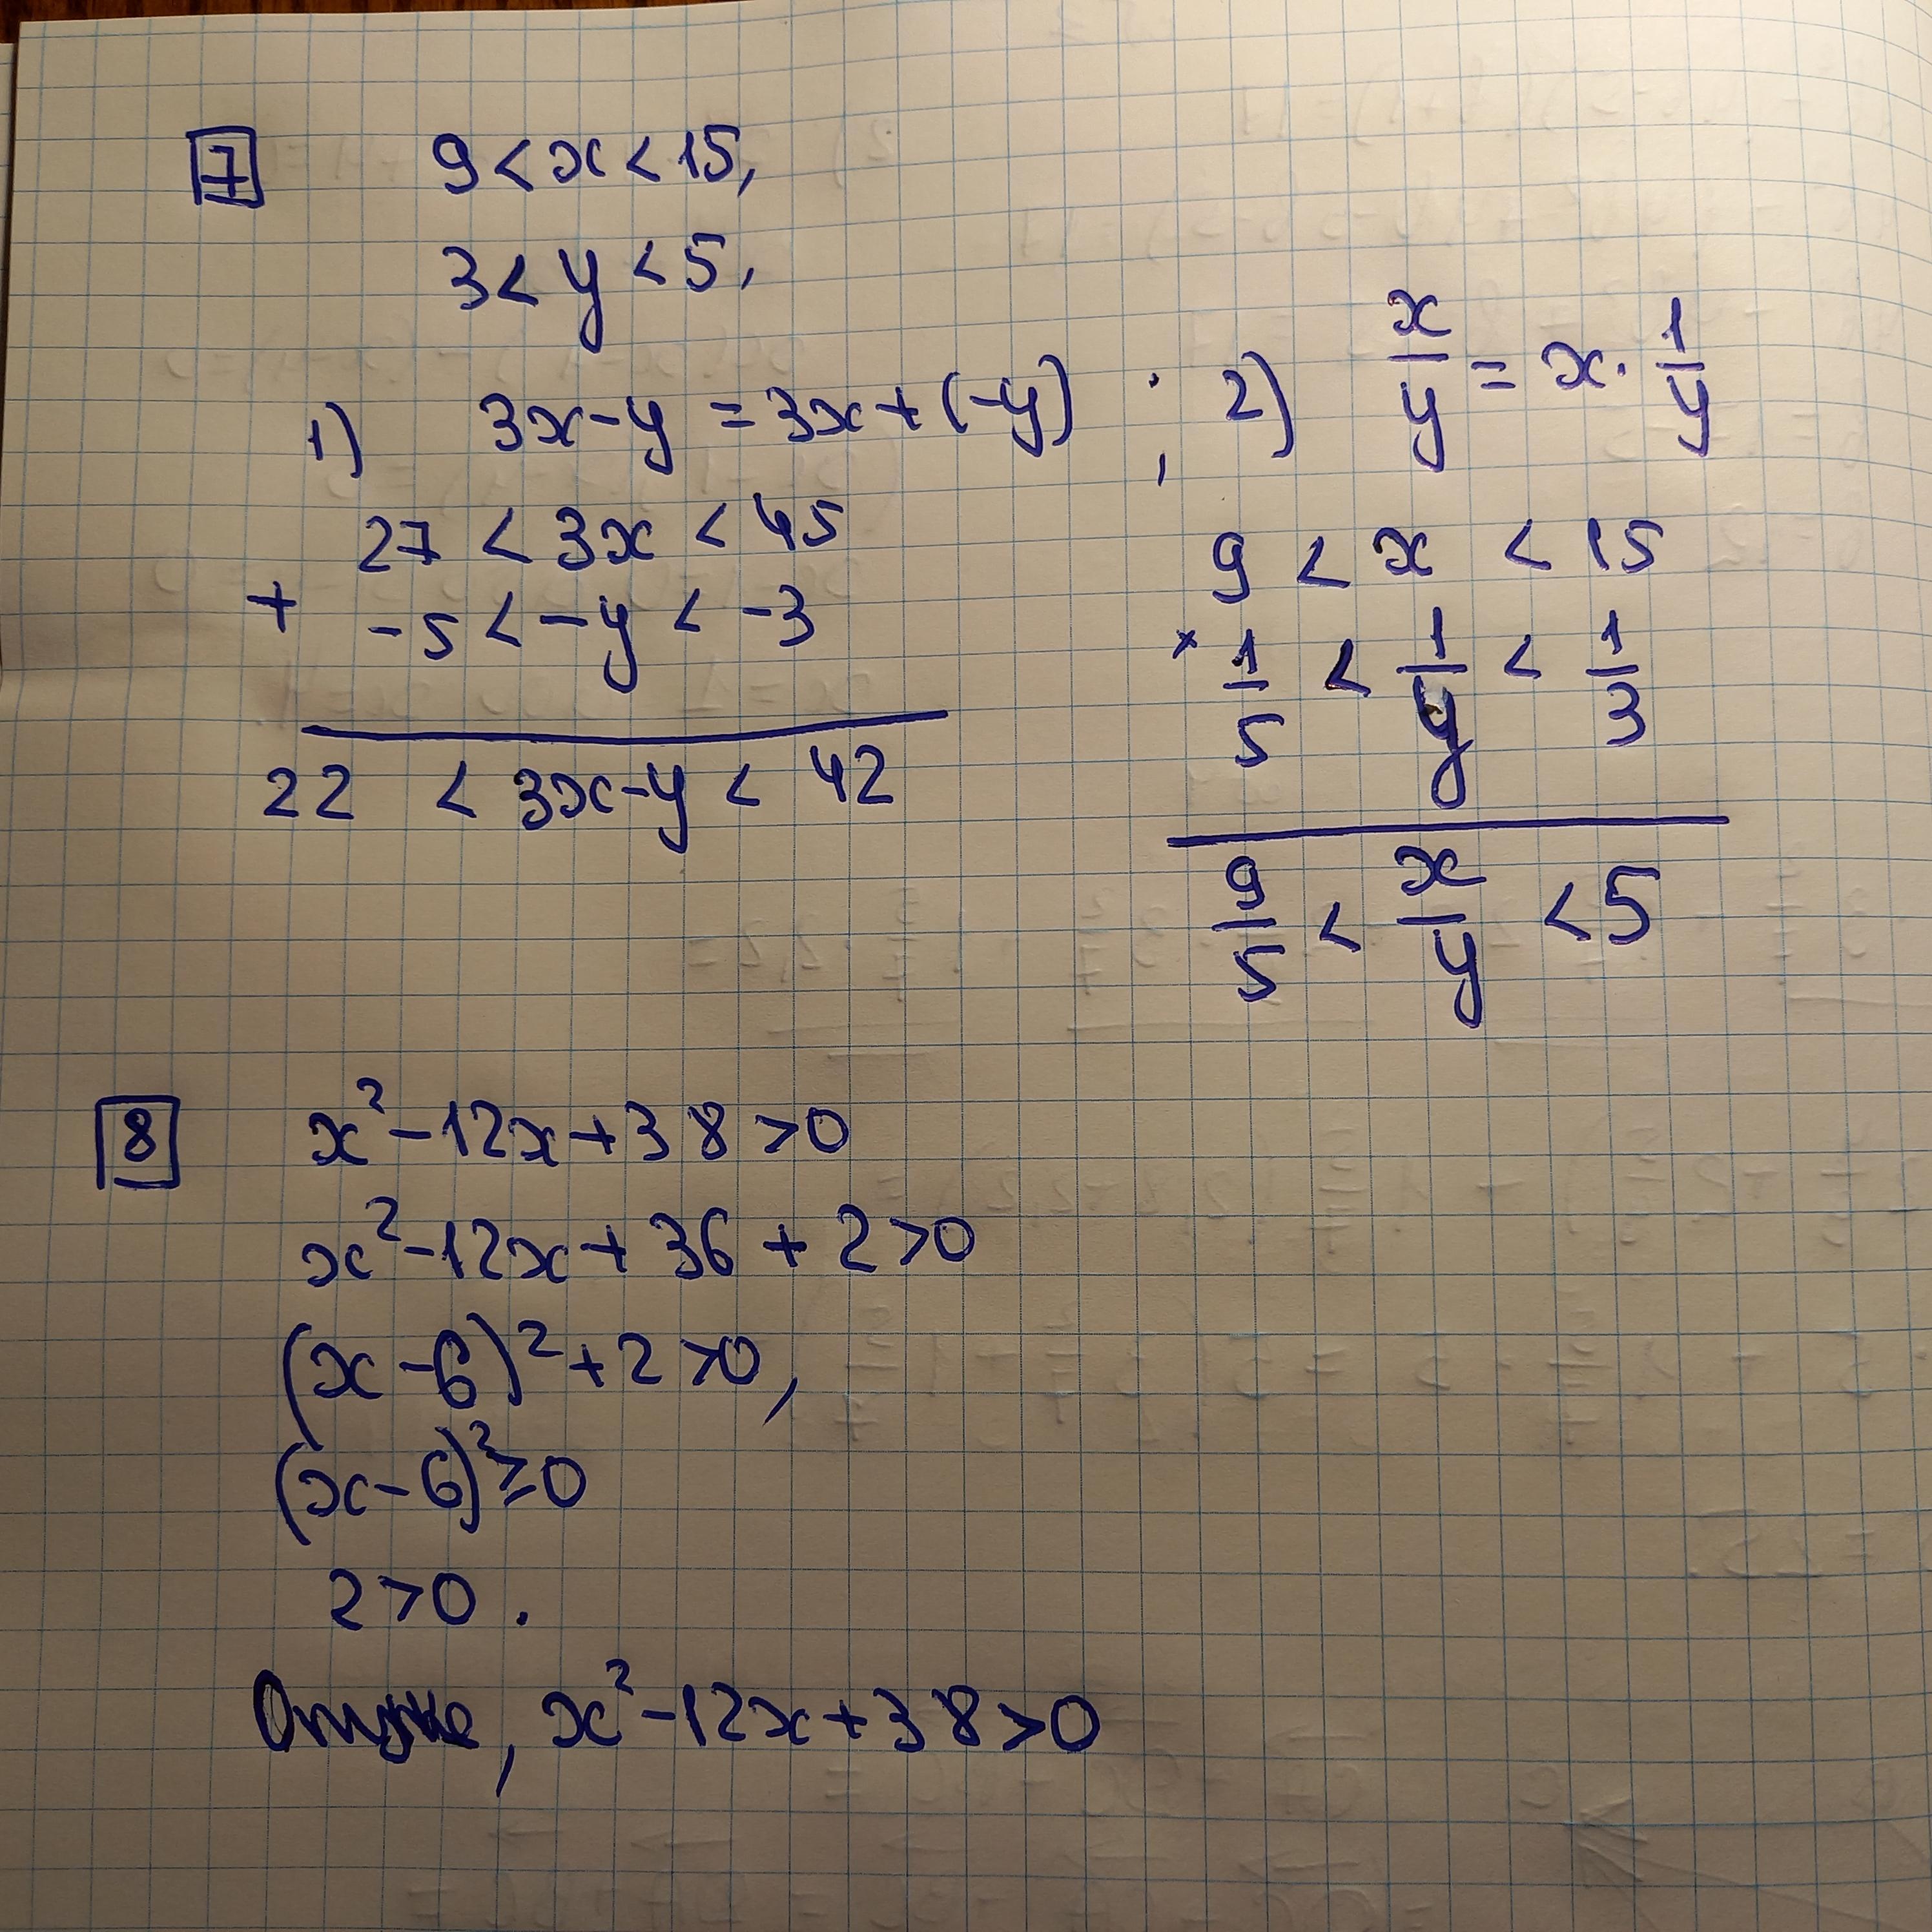 7
9 < x < 15,
3 < y < 5,
1) 3x - y = 3x + (-y) ;
27 < 3x < 45
+ -5 < -y < -3
22 < 3x - y < 42
2) x/y = x · 1/y
9 < x < 15
× 1/5 < 1/y < 1/3
9/5 < x/y < 5
8
x² - 12x + 38 > 0
x² - 12x + 36 + 2 > 0
(x - 6)² + 2 > 0,
(x - 6)² ≥ 0
2 > 0 .
Отже, x² - 12x + 38 > 0